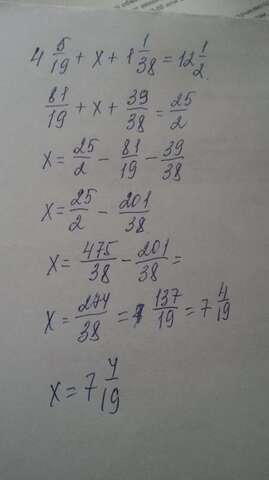 4 5/19 + x + 1 1/38 = 12 1/2
81/19 + x + 39/38 = 25/2
x = 25/2 - 81/19 - 39/38
x = 25/2 - 201/38
x = 475/38 - 201/38 =
x = 274/38 = 137/19 = 7 4/19
x = 7 4/19